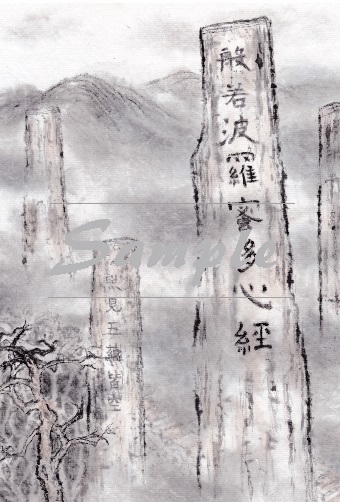 般若波羅蜜多心經
照見五蘊皆空
Sample